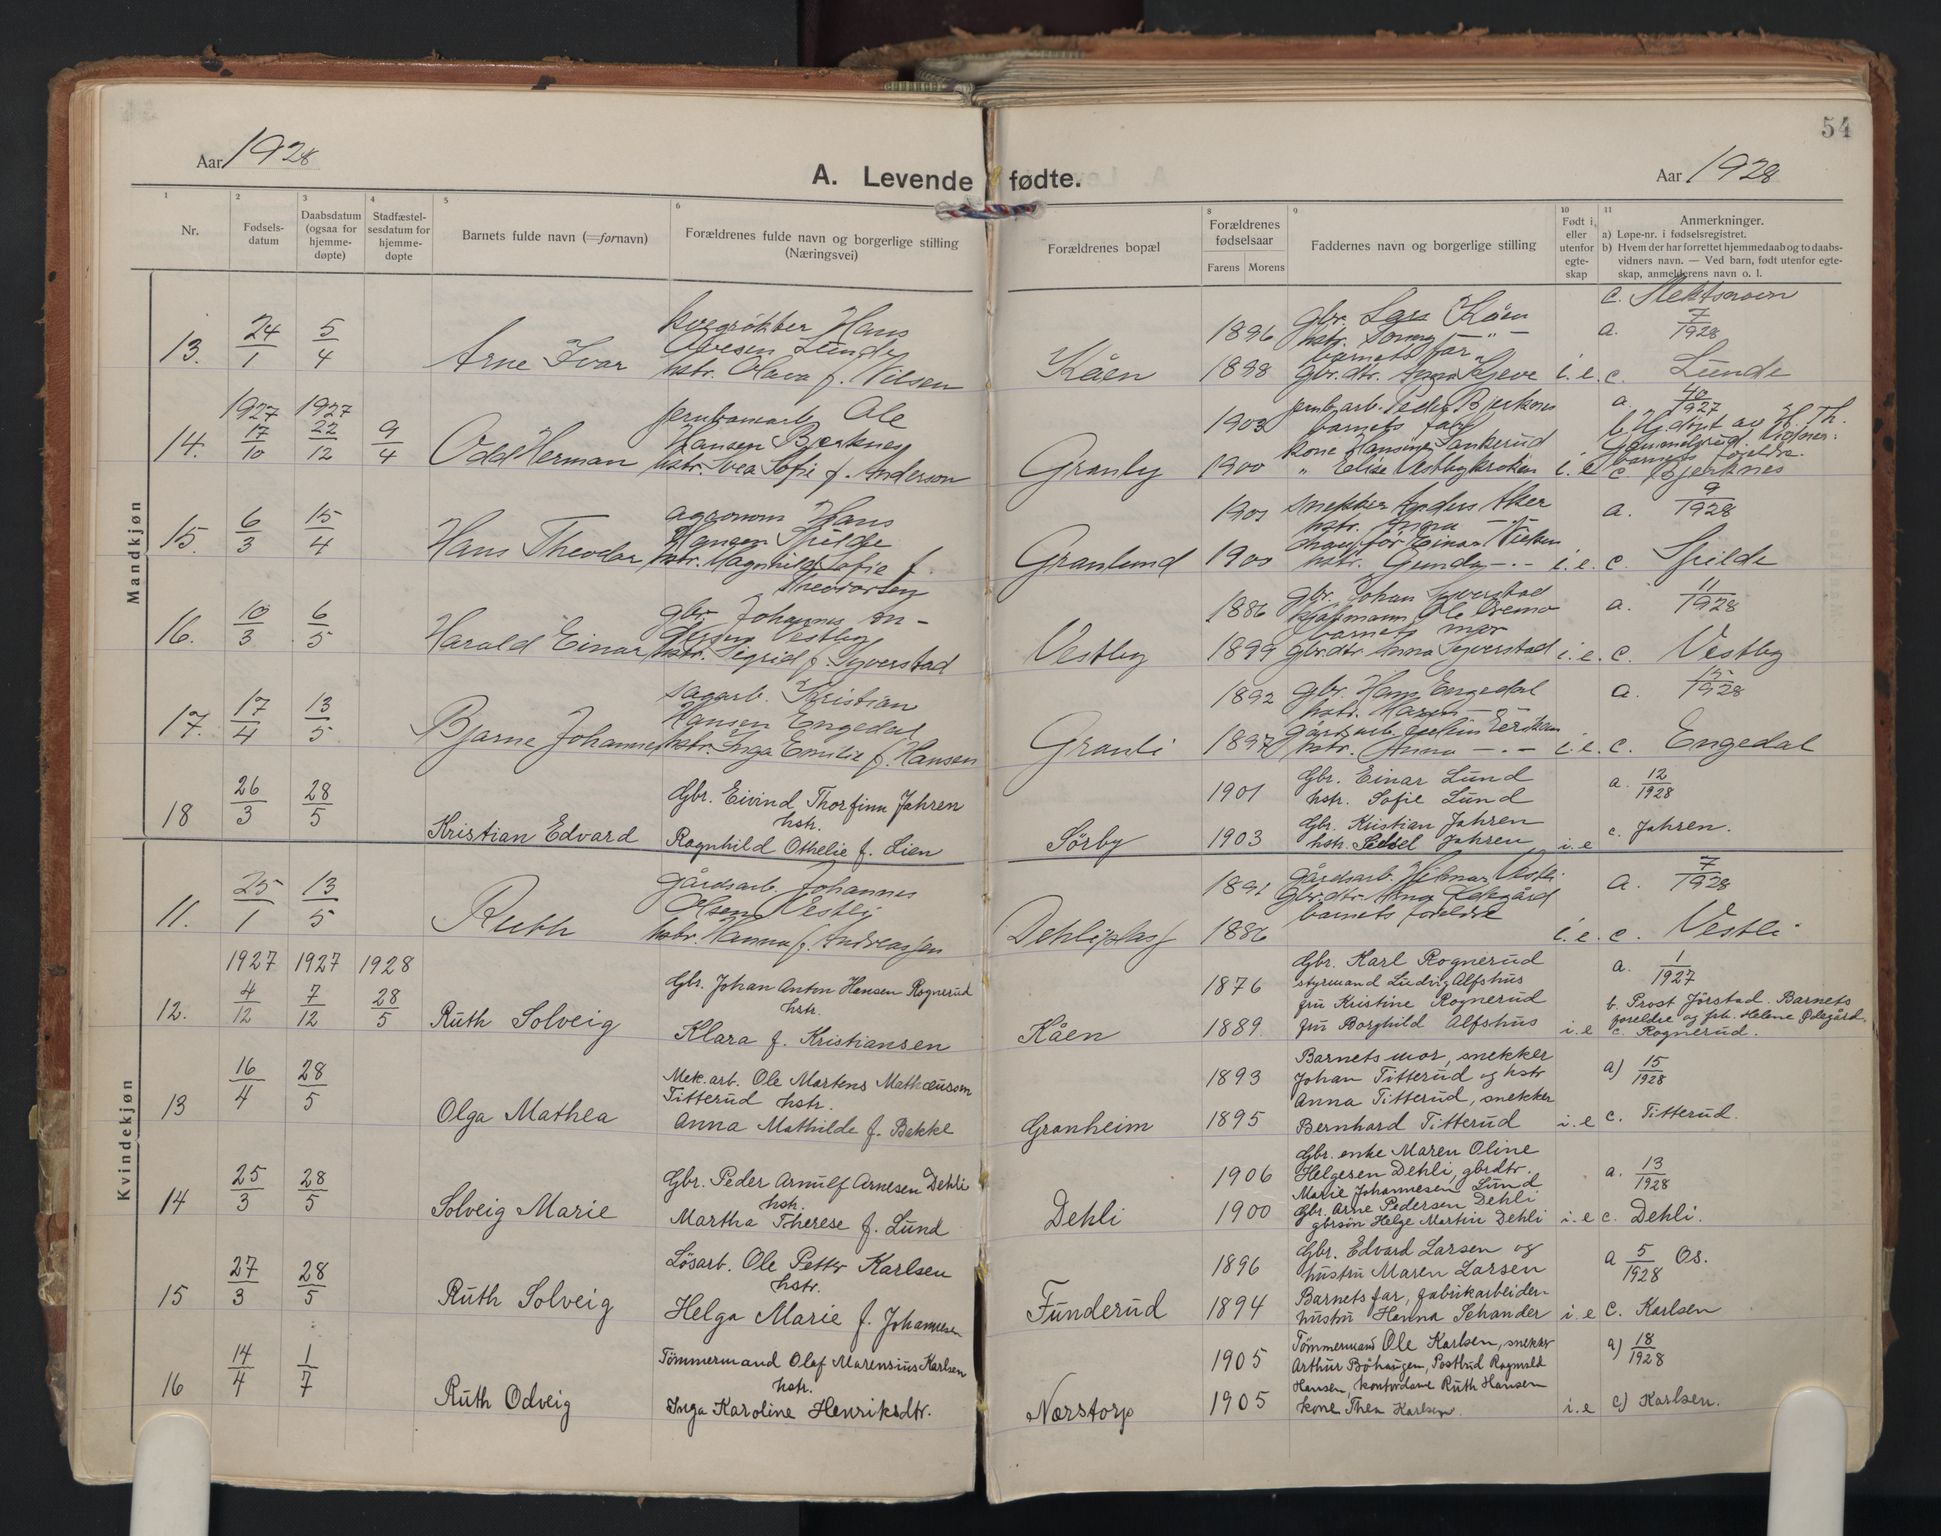 54
Aar 1928
A. Levende fødte.
Aar 1928
1 Nr.
2 Fødsels-datum
3 Daabsdatum (ogsaa for hjemme-døpte)
4 Stadfæstel-sesdatum for hjemme-døpte
5 Barnets fulde navn (=fornavn)
6 Forældrenes fulde navn og borgerlige stilling (Næringsvei)
Forældrenes bopæl
8 Forældrenes fødselsaar
Farens Morens
9 Faddernes navn og borgerlige stilling
10 Født i, eller utenfor egte-skap
11 Anmerkninger.
a) Løpe-nr. i fødselsregistret.
b) Hvem der har forrettet hjemmedaab og to daabs-
vidners navn. — Ved barn, født utenfor egte-
skap, anmelderens navn o. l.
Mandkjøn
13. 24/1 5/4
Arne Ivar
Hans
Lunde
hstr. Olava f. Nilsen
Kåen
1896
1898
gbr. Lars Kåen
hstr.
barnets far
gbr.dtr. Anna
i.e.
a. 7/1928
c. Lunde
14. 1927 17/10 1927 22/12 9/4
Odd Herman
Ole
Hansen Bjerknes
hstr. Svea Sofie f. Anderson
Granby
1903
1900
Peder Bjerknes
barnets far
kone Hansine Sankerud
" Elise
i.e
a. 40/1927
b. Hj.døpt av H. Th.
barnets
c. Bjerknes
15. 6/3 15/4
Hans Theodor
agronom Hans
Hansen Spilde
hstr. Magnhild Sofie f.
Theodorsen
Granlund
1901
1900
snekker Anders Aker
hstr. Anna — " —
Einar Nielsen
hstr. Gunda - " -
i.e.
a. 9/1928
c. Spilde
16. 10/3 6/5
Harald Einar
gbr. Johannes An-
dersen Vestby
hstr. Sigrid f. Syverstad
Vestby
1886
1899
gbr. Johan Syverstad
Ole
barnets mor
gbr.dtr. Anna Syverstad
i.e.
a. 11/1928
c. Vestby
17. 17/4 13/5
Bjarne Johannes
sagarb. Kristian
Hansen Engedal
hstr. Inga Emilie f. Hansen
Granli
1892
1897
gbr. Hans Engedal
hstr. Maren - " -
gårdsarb.
hstr. Anna - " -
i.e.
a. 15/1928
c. Engedal
18 26/3 28/5
Kristian Edvard
Gbr. Eivind Thorfinn Jahren
hstr.
Ragnhild Othelie f. Lien
Sörby
1901
1903
Gbr. Einar Lund
hstr. Sofie Lund
Gbr. Kristian Jahren
hstr. Sidsel Jahren
i.e
a. 12/1928
c. Jahren.
Kvindekjøn
11. 25/1 13/5
Ruth
gårdsarb. Johannes
Olsen Vestli
hstr. Hanna f. Andreassen
Dehliplass
1892
1886
gårdsarb. Hilmar Vestli
Gbr.dtr. Ødegård
barnets foreldre
i.e.
a. 7/1928
c. Vestli
12. 1927 4/12 1927 7/12 1928 28/5
Ruth Solveig
Gbr. Johan Anton Hansen Rognerud
hstr.
Klara f. Kristiansen
Kåen
1876
1889.
Gbr. Karl Rognerud
styrmand Ludvig Alfshus
fru Kristine Rognerud
fru Borghild Alfshus
i.e
a. 1/1927
b. Prost Jörstad. Barnets
foreldre og frk. Helene Ödegård
c. Rognerud.
13 16/4 28/5
Olga Mathea
Mek.arb. Ole Martens Mathæussøn
Titterud hstr.
Anna Mathilde f. Bakke
Granheim
1893
1895
Barnets mor, snekker
Johan Titterud og hstr
Anna Titterud, snekker
Bernhard Titterud
i.e
a) 15/1928
c. Titterud.
14 25/3 28/5
Solveig Marie
Gbr. Peder Arnulf Arnesen Dehli
hstr.
Martha Therese f. Lund
Dehli
1906
1900
Gbr. enke Maren Oline
Helgesen Dehli, gbrdtr.
Marie Johannesen Lund
Gbr. Arne Pedersen Dehli
gbrsön Helge Martin Dehli
i.e
a. 13/1928
c. Dehli.
15 27/3 28/5
Ruth Solveig
Lösarb. Ole Petter Karlsen
hstr.
Helga Marie f. Johannesen
Funderud
1896
1894
Gbr. Edvard Larsen og
hustru Maren Larsen
Barnets far, fabrikarbeider-
hustru Hanna Schander
i.e
a 5/1928 Os.
c. Karlsen
16 14/4 1/7
Ruth Odveig
Tömmermand Olaf Marensius Karlsen
hstr.
Inga Karoline Henriksdtr.
Nærstorp
1905
1905
Tömmermand Ole Karlsen, snekker
Arthur Böhaugen, Postbud Ragnvald
Hansen, kontordame Ruth Hansen
kone Thea Karlsen.
i.e
a) 18/1928
c) Karlsen.